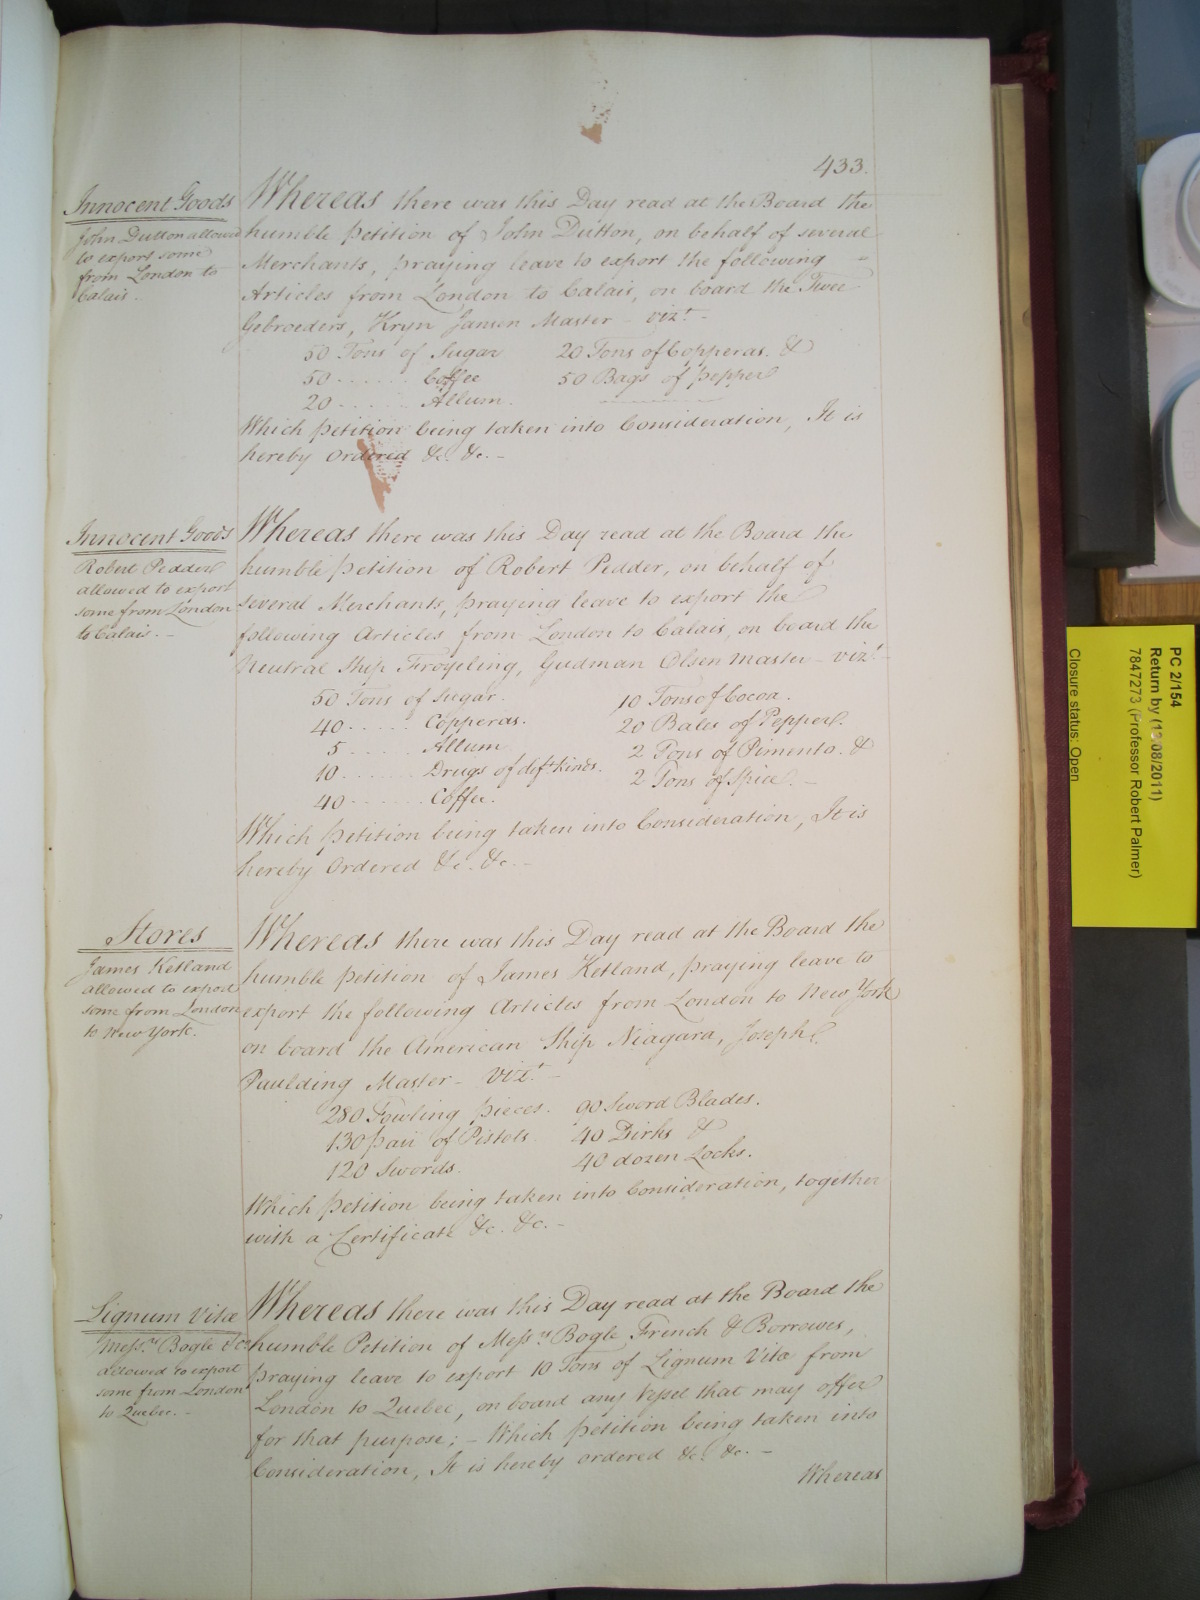 433.
Innocent Goods
John Dutton allowed
to export some
from London to
Calais.
Whereas there was this Day read at the Board the
humble petition of John Dutton, on behalf of several
Merchants, praying leave to export the following
Articles from London to Calais, on board the Twee
Gebroeders, Kryn Jansen Master - vizt. -
50 Tons of Sugar 20 Tons of Copperas. &
50 ...... Coffee 50 Bags of pepper
20 ...... Allum.
Which petition being taken into Consideration, It is
hereby ordered &c. &c. -
Innocent Goods
Robert Pedder
allowed to export
some from London
to Calais. -
Whereas there was this Day read at the Board the
humble petition of Robert Pedder, on behalf of
several Merchants, praying leave to export the
following Articles from London to Calais, on board the
Neutral Ship Gudman Olsen Master - vizt. -
50 Tons of Sugar. 10 Tons of Cocoa.
40 ...... Copperas. 20 Bales of Pepper.
5 ...... Allum 2 Tons of Pimento. &
10 ...... Drugs of dift. kinds. 2 Tons of Spice. -
40 ...... Coffee.
Which petition being taken into Consideration, It is
hereby Ordered &c. &c. -
Stores
James Ketland
allowed to export
some from London
to New York.
Whereas there was this Day read at the Board the
humble petition of James Ketland, praying leave to
export the following Articles from London to New York
on board the American Ship Niagara, Joseph
Paulding Master - Vizt. -
280 Fowling pieces. 90 Sword Blades.
130 pair of Pistols 40 Dirks &
120 Swords. 40 dozen Locks.
Which petition being taken into Consideration, together
with a Certificate &c. &c. -
Lignum Vitæ
Messrs. Bogle & Co.
allowed to export
some from London
to Quebec. -
Whereas there was this Day read at the Board the
humble Petition of Messrs. Bogle French & Borrowes,
praying leave to export 10 Tons of Lignum Vitæ from
London to Quebec, on board any Vessel that may offer
for that purpose; - Which petition being taken into
Consideration, It is hereby ordered &c. &c. -
Whereas
PC 2/154
Return by (1 08/2011)
7847273 (Professor Robert Palmer)
Closure status: Open